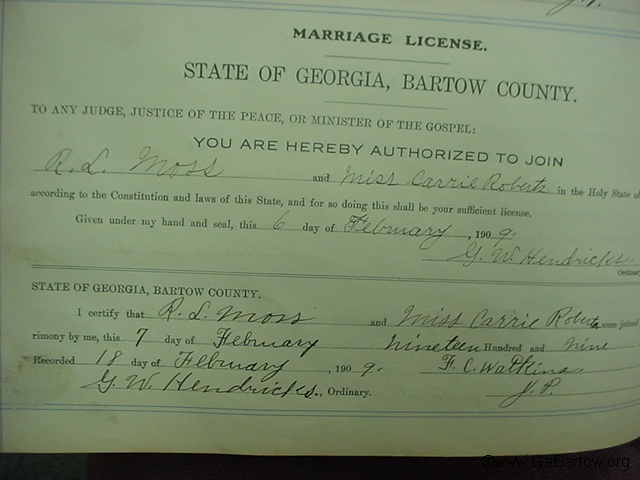 MARRIAGE LICENSE.
STATE OF GEORGIA, BARTOW COUNTY.
TO ANY JUDGE, JUSTICE OF THE PEACE, OR MINISTER OF THE GOSPEL:
YOU ARE HEREBY AUTHORIZED TO JOIN
R. L. Moss and Miss Carrie Roberts in the Holy State of
according to the Constitution and laws of this State, and for so doing this shall be your sufficient license.
Given under my hand and seal, this 6 day of February, 1909.
G. W. Hendricks.
Ordinary
STATE OF GEORGIA, BARTOW COUNTY.
I certify that R. L. Moss and Miss Carrie Roberts were joined
rimony by me, this 7 day of February nineteen Hundred and nine
Recorded 18 day of February, 1909. F. C. Watkins.
G. W. Hendricks., Ordinary. J. P.
©www.GaBartow.org